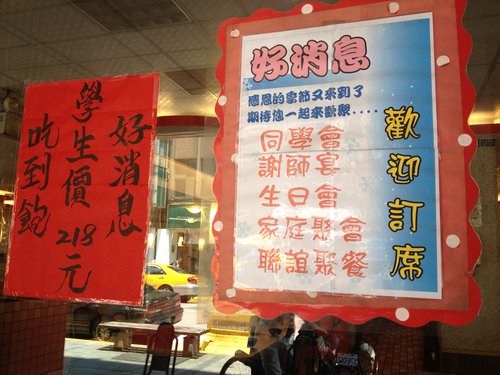 好消息
學生價218元
吃到飽
好消息
感恩的季節又來到了
期待您一起來歡聚....
同學會
謝師宴
生日會
家庭聚會
聯誼聚餐
歡迎訂席